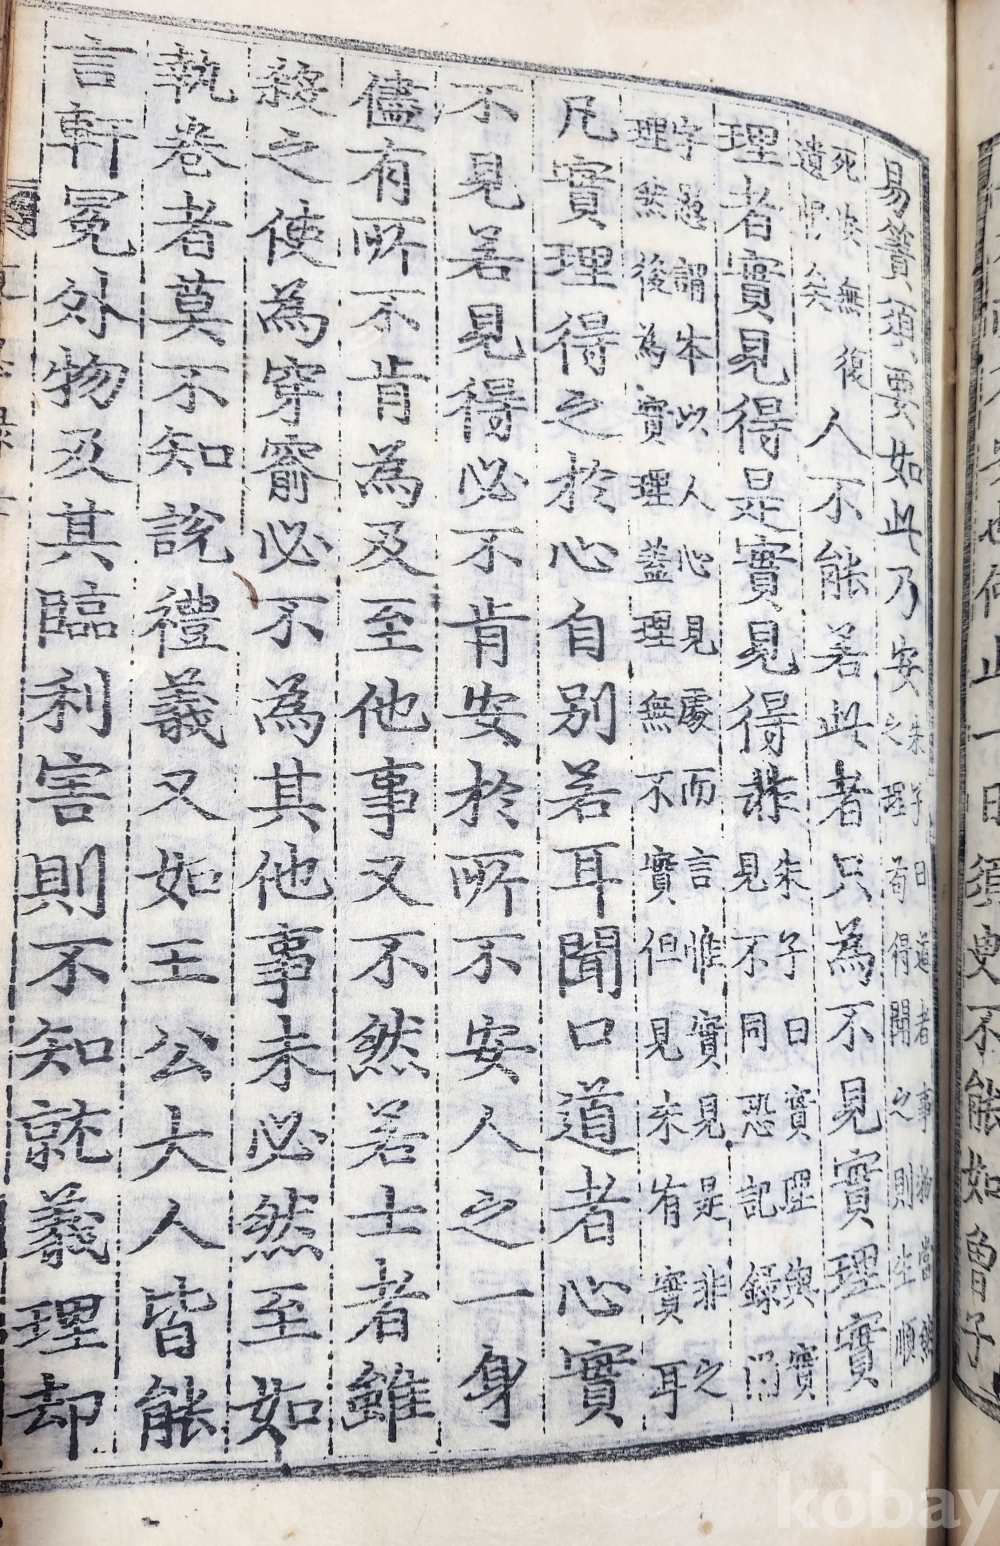 也何止一日須臾不能如曾子
易簀須要如此乃安朱子曰道者事物當然
之理苟得聞之則生順
死安無復
遺恨矣
人不能若此者只為不見實理實
理者實見得是實見得非朱子曰實理與實
見不同恐記錄闕
字愚謂本以人心見處而言惟實見是非之
理然後為實理蓋理無不實但見未有實耳
凡實理得之於心自別若耳聞口道者心實
不見若見得必不肯安於所不安人之一身
儘有所不肯為及至他事又不然若士者雖
殺之使為穿窬必不為其他事未必然至如
執卷者莫不知說禮義又如王公大人皆能
言軒冕外物及其臨利害則不知就義理却
kobay